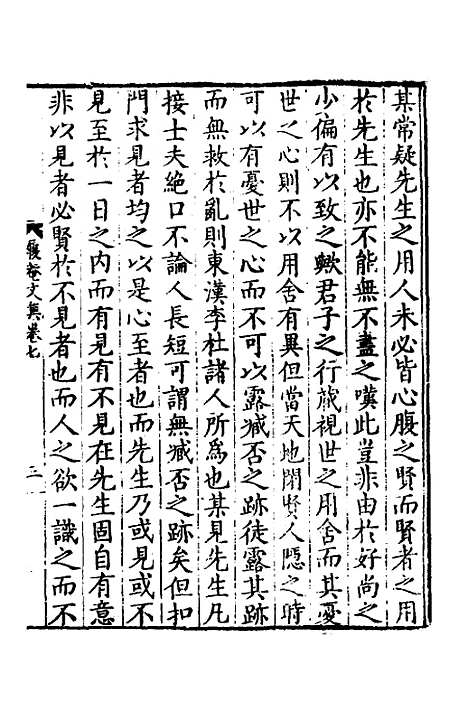 某常疑先生之用人未必皆心腹之賢而賢者之用
於先生也亦不能無不盡之嘆此豈非由於好尚之
少偏有以致之歟君子之行藏視世之用舍而其憂
世之心則不以用舍有異但當天地閉賢人隱之時
可以有憂世之心而不可以露臧否之跡徒露其跡
而無救於亂則東漢李杜諸人所為也某見先生凡
接士夫絶口不論人長短可謂無臧否之跡矣但扣
門求見者均之以是心至者也而先生乃或見或不
見至於一日之內而有見有不見在先生固自有意
非以見者必賢於不見者也而人之欲一識之而不
文集卷七
三